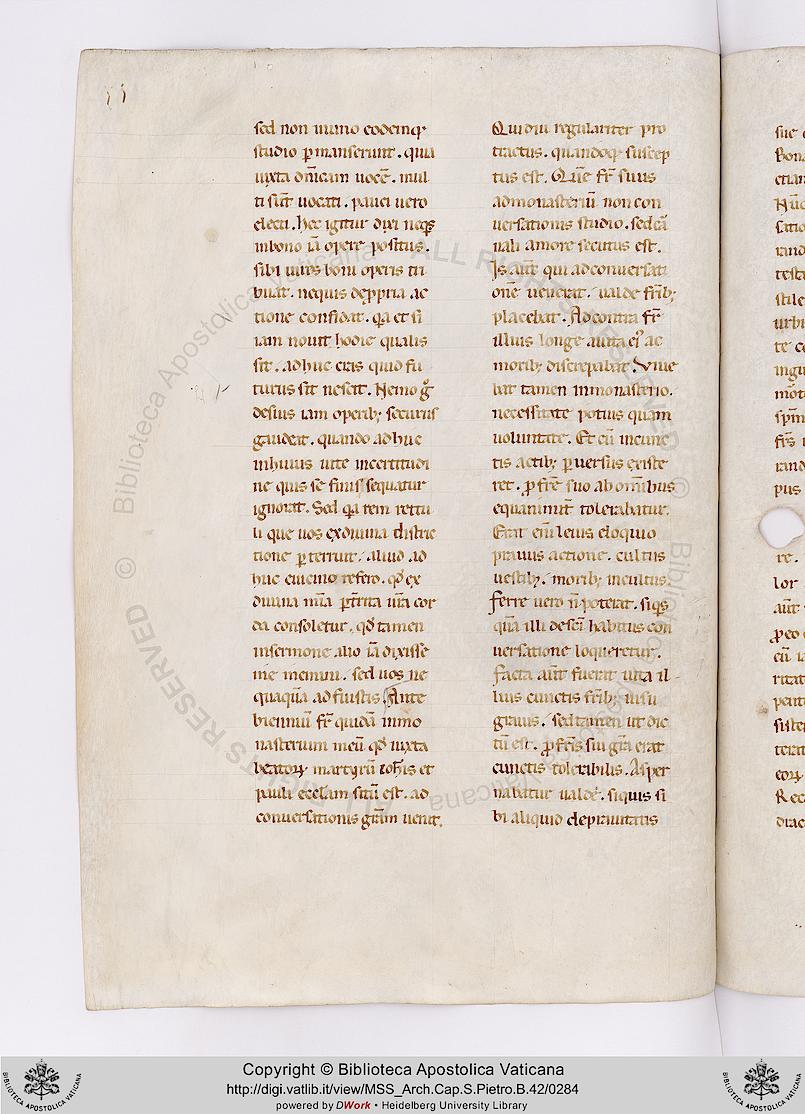 sed non uuıno eodemq;
studio ꝑmanserunt. quia
iuxta dn̄icam uocē. mul
ti sūt uocati. pauci uero
electi. hec igitur dixi neq̄s
inbono iā opere positus.
sibi uires boni operis tri
buat. nequis deꝓpria ac
tione confidat. q̄a et si
iam nouit hodie qualis
sit. adhuc cras quid fu
turus sit nescit. Nemo g̊
desuis iam operib; securus
gaudeat. quando adhuc
inhuius uite incertitudi
ne quis se finis sequatur
ignorat. Sed q̄a rem rettu
li que uos exdiuina distric
tione ꝑterruit. aliud ad
huc euicino refero. qd̄ ex
diuina mīa ꝑt̄rita ur̄a cor
da consoletur. qd̄ tamen
insermone alio iā dixisse
me memini. sed uos ne
quaquā adfuistis. Ante
biennium fr̄ quidā inmo
nasterium meū qd̄ iuxta
beatoꝝ martyrū ioh̄is et
pauli eccl̄am sitū est. ad
conuersationis gr̄am uenit.
Qui diu regulariter pro
tractus. quandoq; suscep
tus est. Quē fr̄ suus
admonasteriū non con
uersationis studio. sedcar
nali amore secutus est.
Is aūt qui adconuersati
onē uenerat. ualde fr̄ib;
placebat. Adcontra fr̄
illius longe auita eꝰ ac
morib; discrepabat. Viue
bat tamen inmonasterio.
necessitate potius quam
uoluntate. Et cū incunc
tis actib; ꝑuersus existe
ret. ꝓ fr̄e suo ab omībus
equanimit̄ tolerabatur.
Erat eni leuis eloquio
prauus actione. cultus
uestib;. morib; incultus.
ferre uero n̄ poterat. siq̄s
quā illi desc̄i habitus con
uersatione loqueretur.
Facta aūt fuerat uita il
lius cunctis fr̄ib; uisu
grauis. sedtamen ut dic
tū est. ꝓ fr̄is sui gr̄a erat
cunctis tolerabilis. Asper
nabatur ualde. siquis si
bi aliquid deprauitatis
© Biblioteca Apostolica Vaticana
ALL RIGHTS RESERVED
Copyright © Biblioteca Apostolica Vaticana
http://digi.vatlib.it/view/MSS_Arch.Cap.S.Pietro.B.42/0284
powered by DWork • Heidelberg University Library